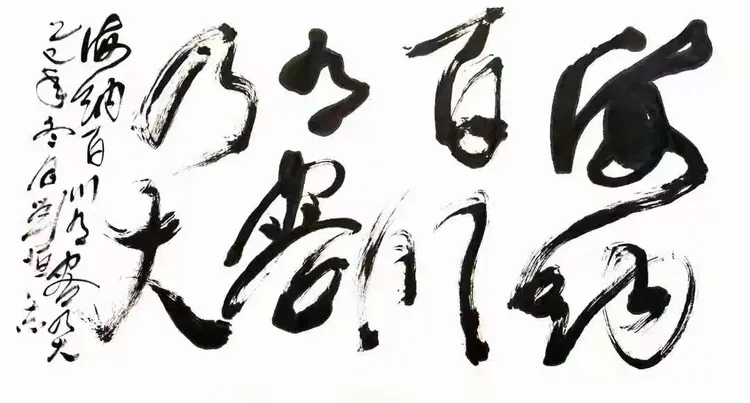 海纳
百川
有容
乃大
海纳百川有容乃大
乙巳年冬月